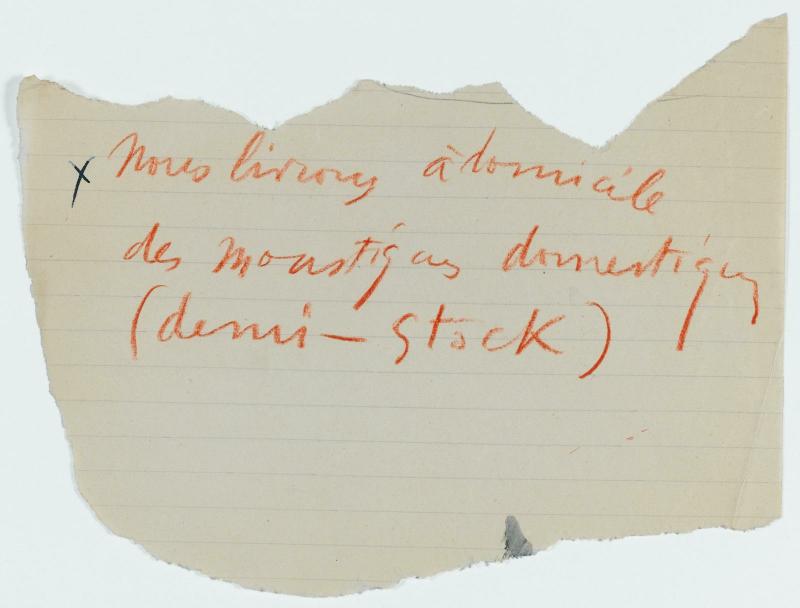 x Nous livrons à domicile
des moustiques domestiques
(demi-stock)